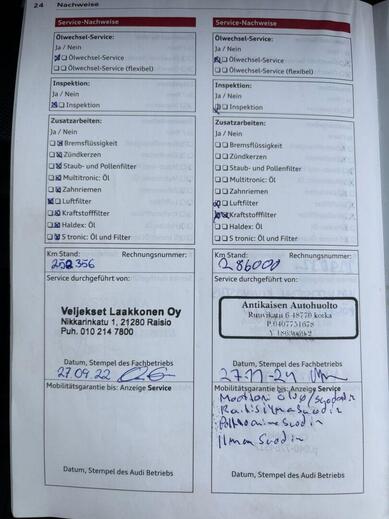 24 Nachweise
Service-Nachweise
Ölwechsel-Service:
Ja / Nein
Ölwechsel-Service
Ölwechsel-Service (flexibel)
Inspektion:
Ja / Nein
Inspektion
Zusatzarbeiten:
Ja / Nein
Bremsflüssigkeit
Zündkerzen
Staub- und Pollenfilter
Multitronic: Öl
Zahnriemen
Luftfilter
Kraftstofffilter
Haldex: Öl
S tronic: Öl und Filter
Km Stand: Rechnungsnummer:
252 356
Service durchgeführt von:
Veljekset Laakkonen Oy
Nikkarinkatu 1, 21280 Raisio
Puh. 010 214 7800
Datum, Stempel des Fachbetriebs
27.09.22
Mobilitätsgarantie bis: Anzeige Service
Datum, Stempel des Audi Betriebs
Service-Nachweise
Ölwechsel-Service:
Ja / Nein
Ölwechsel-Service
Ölwechsel-Service (flexibel)
Inspektion:
Ja / Nein
Inspektion
Zusatzarbeiten:
Ja / Nein
Bremsflüssigkeit
Zündkerzen
Staub- und Pollenfilter
Multitronic: Öl
Zahnriemen
Luftfilter
Kraftstofffilter
Haldex: Öl
S tronic: Öl und Filter
Km Stand: Rechnungsnummer:
286000
Service durchgeführt von:
Antikaisen Autohuolto
48770 kotka
P.0407731678
Datum, Stempel des Fachbetriebs
27-11-24
Mobilitätsgarantie bis: Anzeige Service
Datum, Stempel des Audi Betriebs